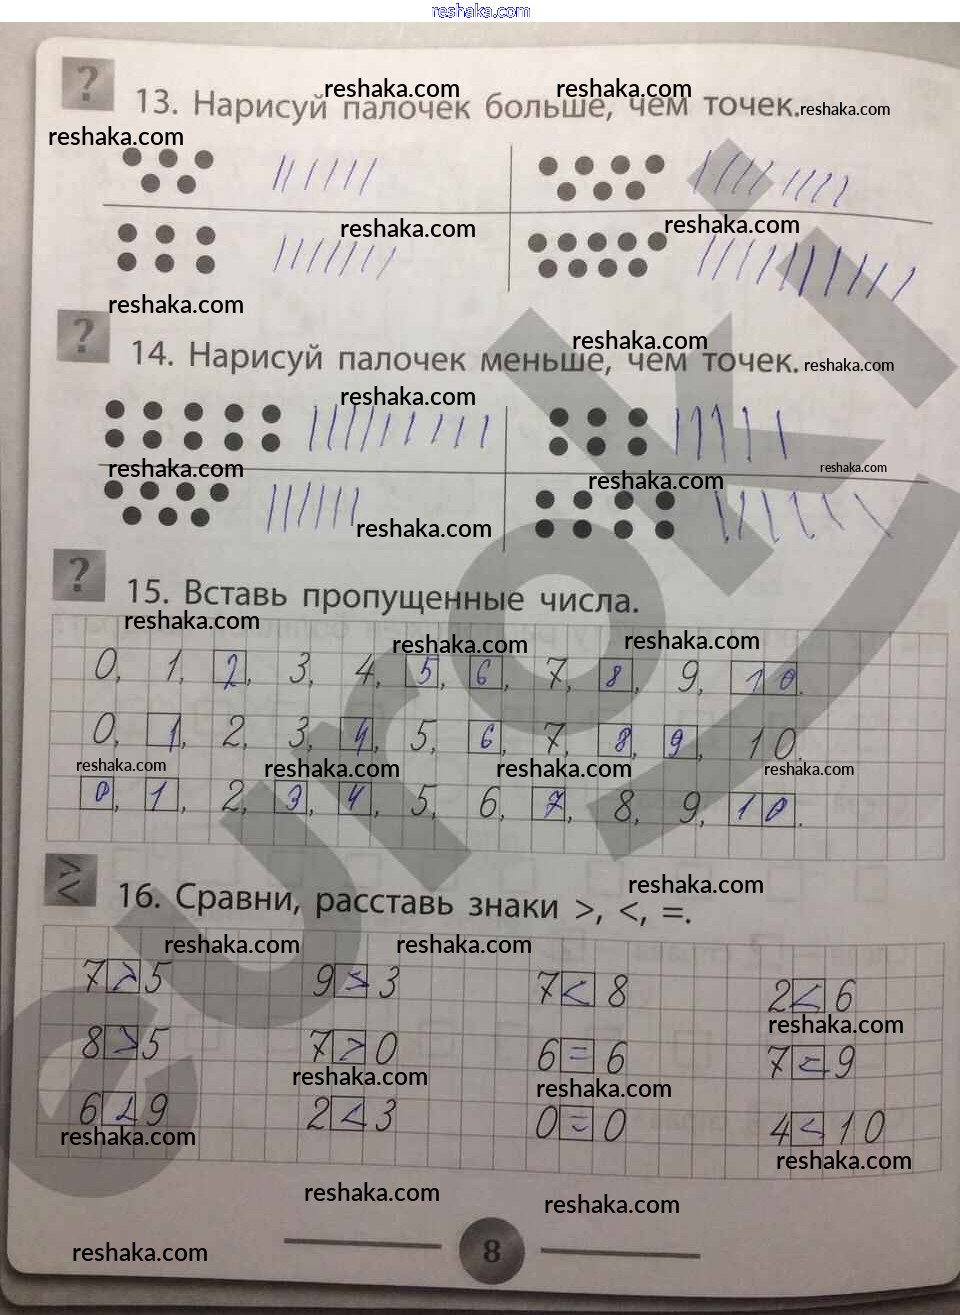 reshaka.com
?
13. Нарисуй палочек больше, чем точек.
reshaka.com
reshaka.com
reshaka.com
reshaka.com
reshaka.com
reshaka.com
reshaka.com
?
14. Нарисуй палочек меньше, чем точек.
reshaka.com
reshaka.com
reshaka.com
reshaka.com
reshaka.com
reshaka.com
reshaka.com
?
15. Вставь пропущенные числа.
reshaka.com
reshaka.com
reshaka.com
0, 1, 2, 3, 4, 5, 6, 7, 8, 9, 10.
0, 1, 2, 3, 4, 5, 6, 7, 8, 9, 10.
reshaka.com
reshaka.com
reshaka.com
reshaka.com
0, 1, 2, 3, 4, 5, 6, 7, 8, 9, 10.
> <
16. Сравни, расставь знаки >, <, =.
reshaka.com
reshaka.com
reshaka.com
7 > 5 9 > 3 7 < 8 2 < 6
reshaka.com
8 > 5 7 > 0 6 = 6 7 < 9
reshaka.com
reshaka.com
6 < 9 2 < 3 0 = 0 4 < 10
reshaka.com
reshaka.com
reshaka.com
reshaka.com
8
reshaka.com
euroki